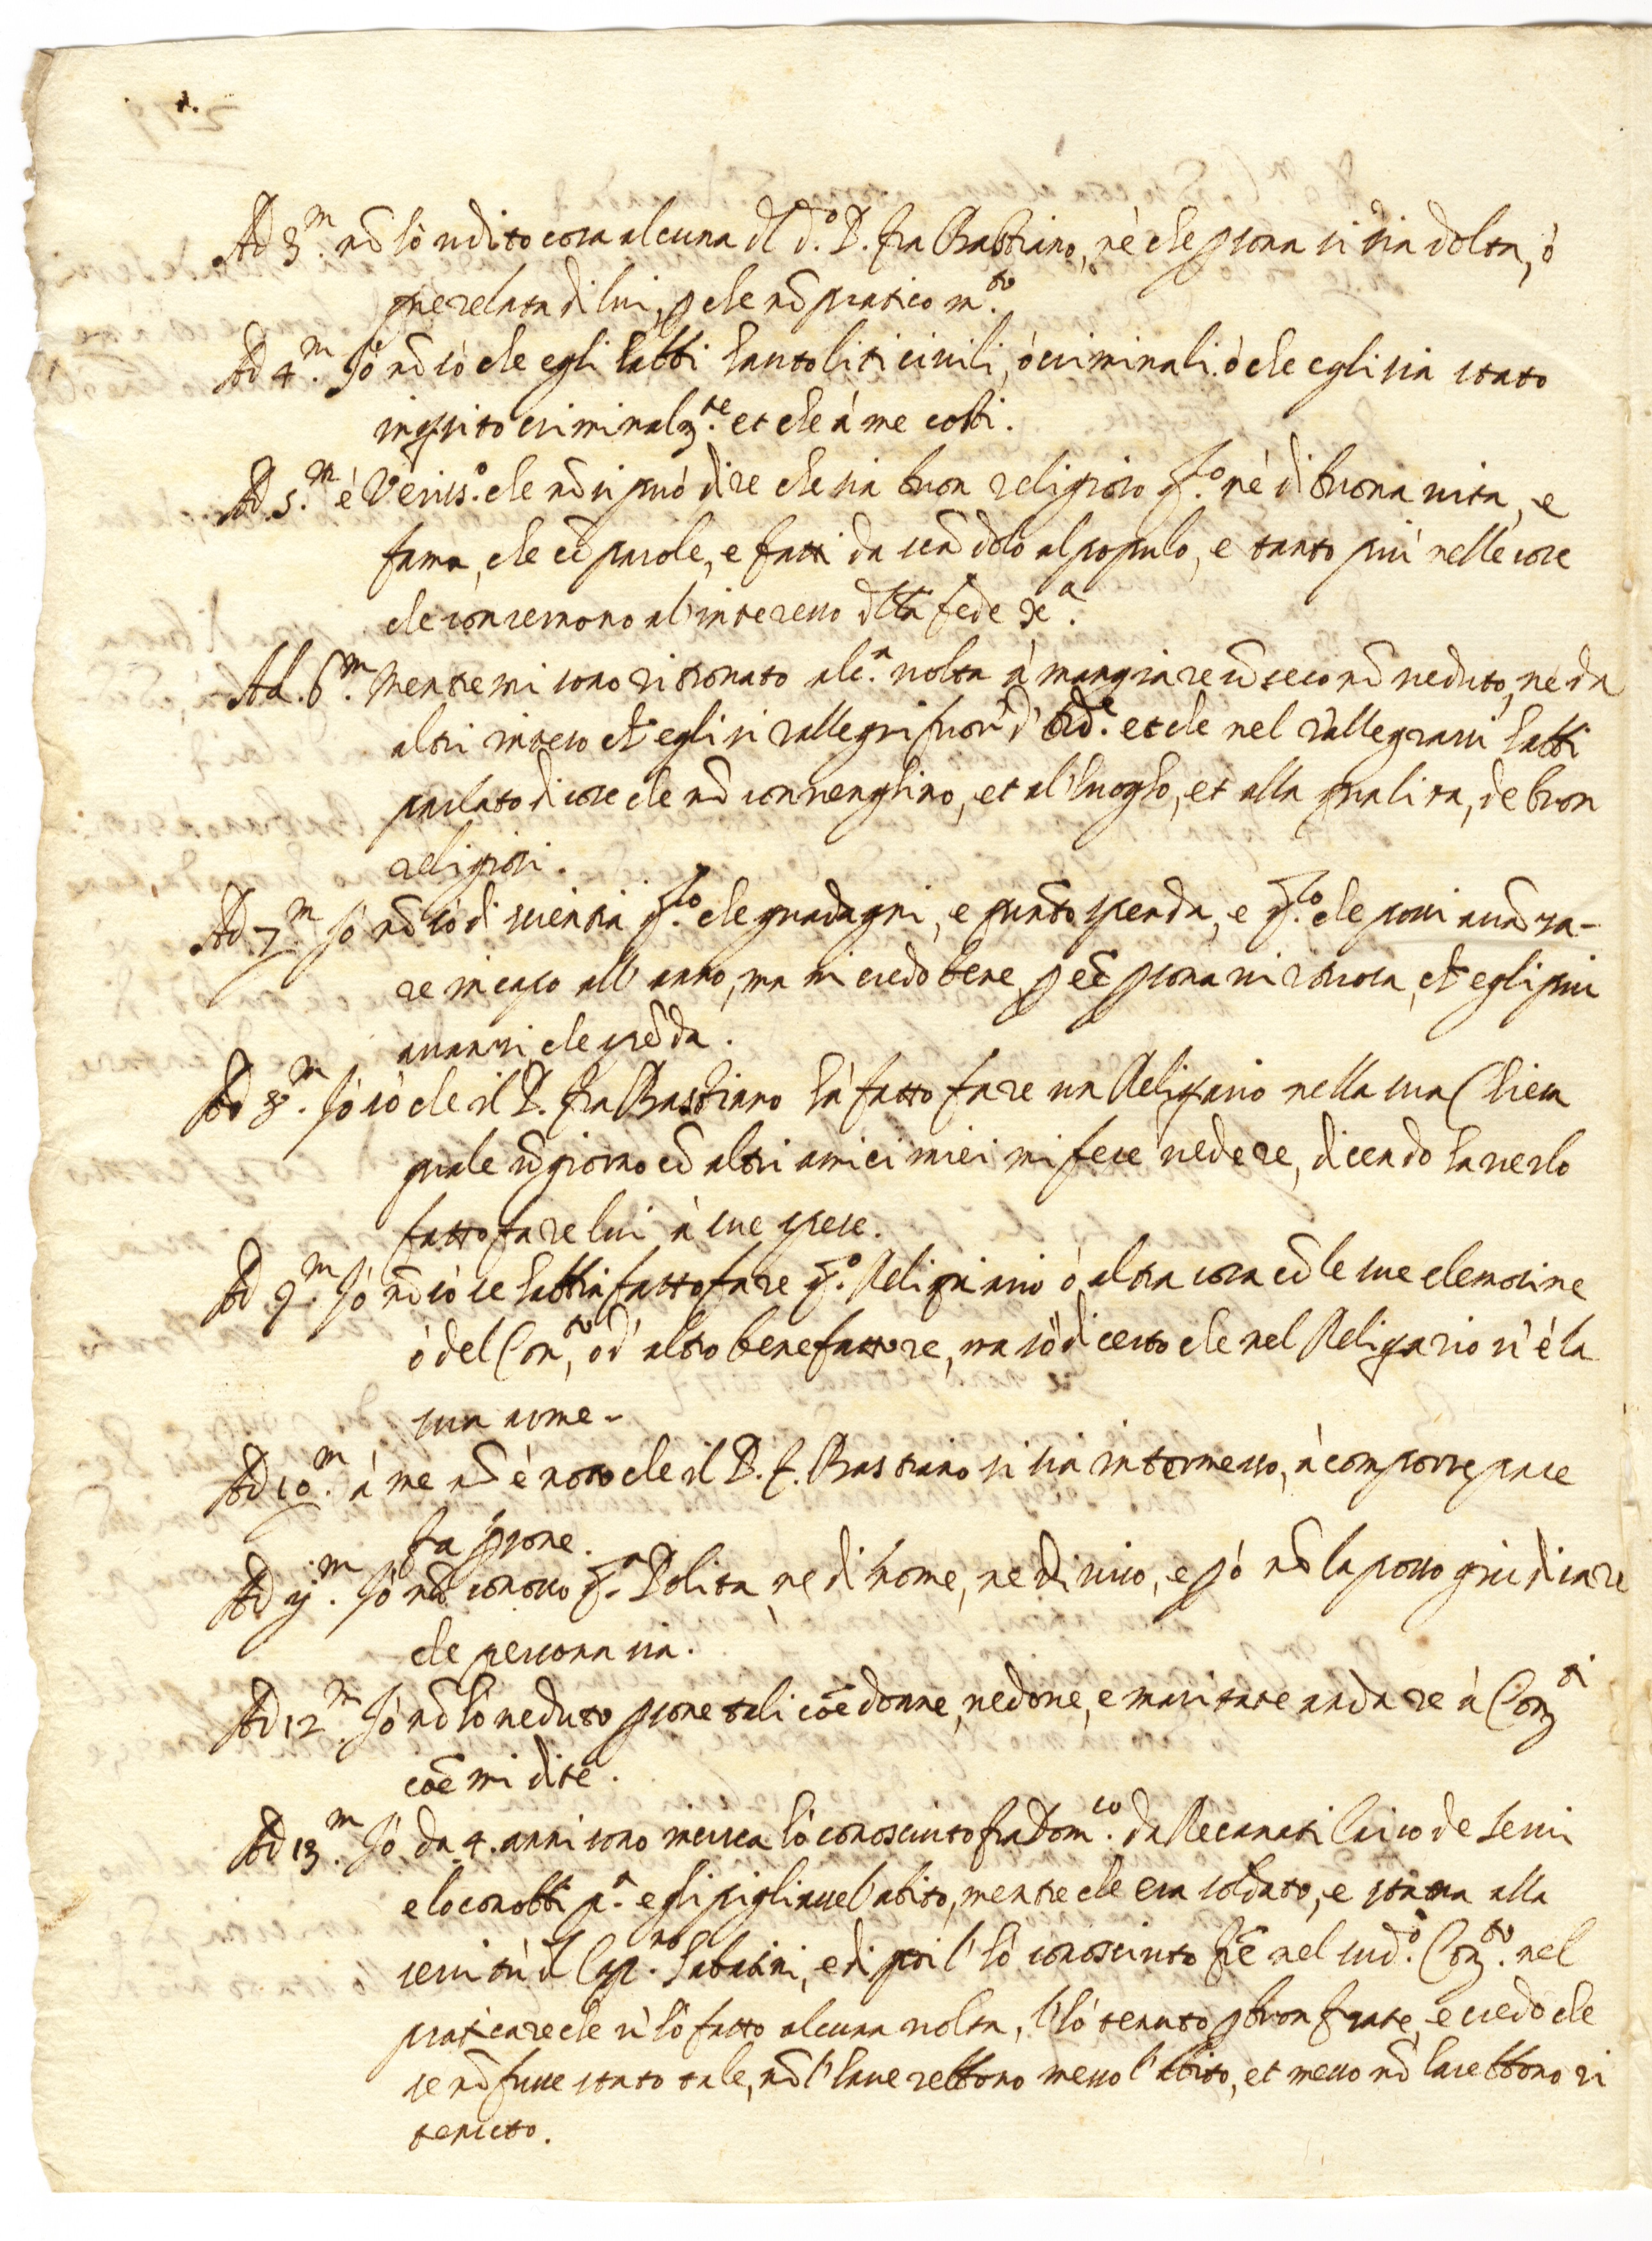 Ad 3.m nõ hò udito cosa alcuna dl d.o P. fra Bastiano, nè che psona si sia dolta, ò
querelata di lui, pche nõ pratico m.to
Ad 4.m Iò nõ sò che egli habbi hauto liti civili, ò criminali. ò che egli sia stato
inqsito criminalm.te et che à me costi.
Ad. 5.m è Veriss.o che nõ si può dire che sia buon religioso q.to nè di buona vita, e
fama, che cõ parole, e fatti da scãdolo al popolo, e tanto più nelle cose
che conservono al'interesso dlla fede xa.
Ad. 6.m Mentre mi sono ritrovato alc.a volta à mangiare cõ seco nõ veduto, nè da
altri inteso ch'egli si rallegri fuor d'ord.e et che nel rallegrarsi habbi
parlato di cose che nõ convenghino, et al'luogho, et alla qualità, de buon
religiosi.
Ad 7.m Iò nõ sò di scienza q.to che guadagni, e quãto spenda, e q.to che possi avãza-
re in capo all'anno, ma mi credo bene, p eẽ psona virtuosa, ch'egli più
avanzi, che spẽda.
Ad 8.m Iò sò che il P. fra Bastiano hà fatto fare un Reliqario nella sua Chiesa
quale ũ giorno cõ altri amici miei mi fece vedere, dicendo haverlo
fatto fare lui à sue spese.
Ad 9.m Iò nõ sò se habbia fatto fare q.o Reliquiario ò altra cosa cõ le sue elemosine
ò del Con.to, ò d'altro benefattore, ma sò di certo che nel Reliqario v'è la
sua arme.
Ad 10.m à me nõ è noto che il P. f. Bastiano si sia intermesso, à comporre pace
fa psone.
Ad ij.m Iò nõ conosco q.a Polita, ne di nome, ne di viso, e pò nõ la posso giudicare
che persona sia.
Ad 12.m Iò nõ hò veduto psone tali cõe donne, vedove, e maritate andare à Con.ti
cõe mi dite.
Ad 13.m Iò da 4. anni sono incirca hò conosciuto fra Dom.co da Recanati laico de servi
e lo conobbi p.a egli pigliasse l'abito, mentre che era soldato, e stava alla
servitù dl Cap.no Sabatini, e di poi l'hò conosciuto frẽ nel sud.o Con.to. nel
praticare che v'hò fatto alcuna volta, l'hò tenuto p buon frate, e credo che
se nõ fusse stato tale, nõ l'haverebbono messo l'abito, et meno nõ l'arebbono ri
tenuto.